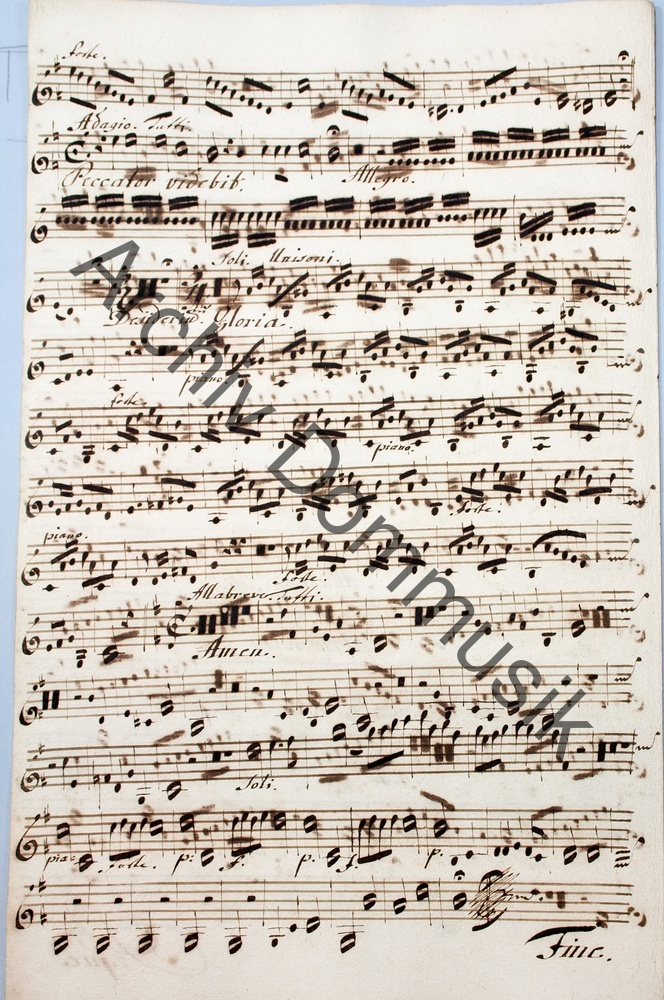 forte.
Adagio. Tutti.
Peccator videbit. Allegro.
Soli. Unisoni.
Desiderium Gloria.
piano.
forte. piano.
forte.
piano.
forte.
Allabreve. Tutti.
Amen.
Soli.
pia: forte. p: f: p. f. p.
Fine.
Archiv Dommusik